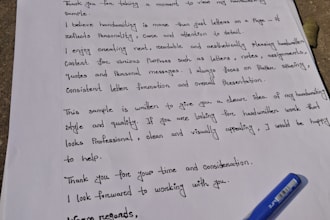 Thank you for taking a moment to view my handwriting
sample.
I believe handwriting is more than just letters on a page - it
reflects personality, care and attention to detail.
I enjoy creating neat, readable and aesthetically pleasing handwritten
content for various purposes such as letters, notes, assignments,
quotes and personal messages. I always focus on proper spacing,
consistent letter formation and overall presentation.
This sample is written to give you a clear idea of my handwriting
style and quality. If you are looking for handwritten work that
looks professional, clean and visually appealing, I would be happy
to help.
Thank you for your time and consideration.
I look forward to working with you.
Warm regards,